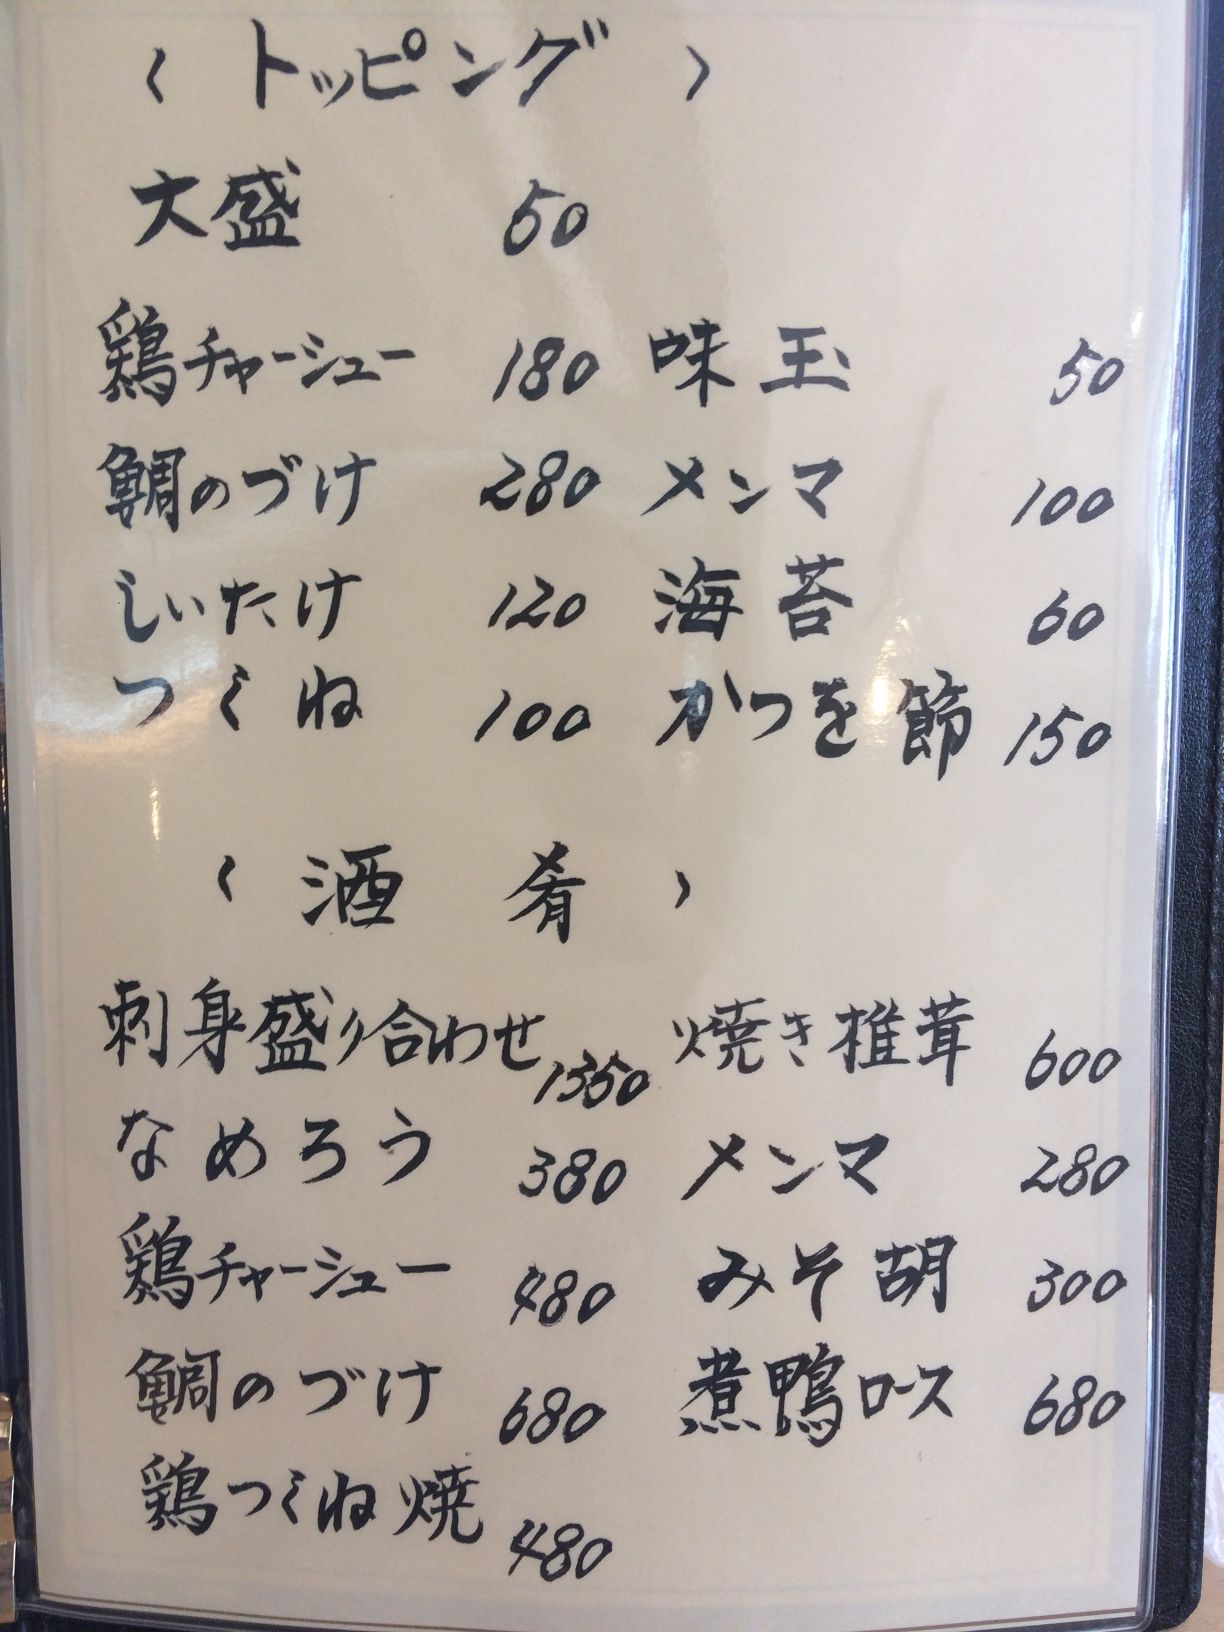 〈 トッピング 〉
大盛 50
鶏チャーシュー 180 味玉 50
鯛のづけ 280 メンマ 100
しいたけ 120 海苔 60
つくね 100 かつを節 150
〈 酒肴 〉
刺身盛り合わせ 1350 焼き椎茸 600
なめろう 380 メンマ 280
鶏チャーシュー 480 みそ胡 300
鯛のづけ 680 煮鴨ロース 680
鶏つくね焼 480